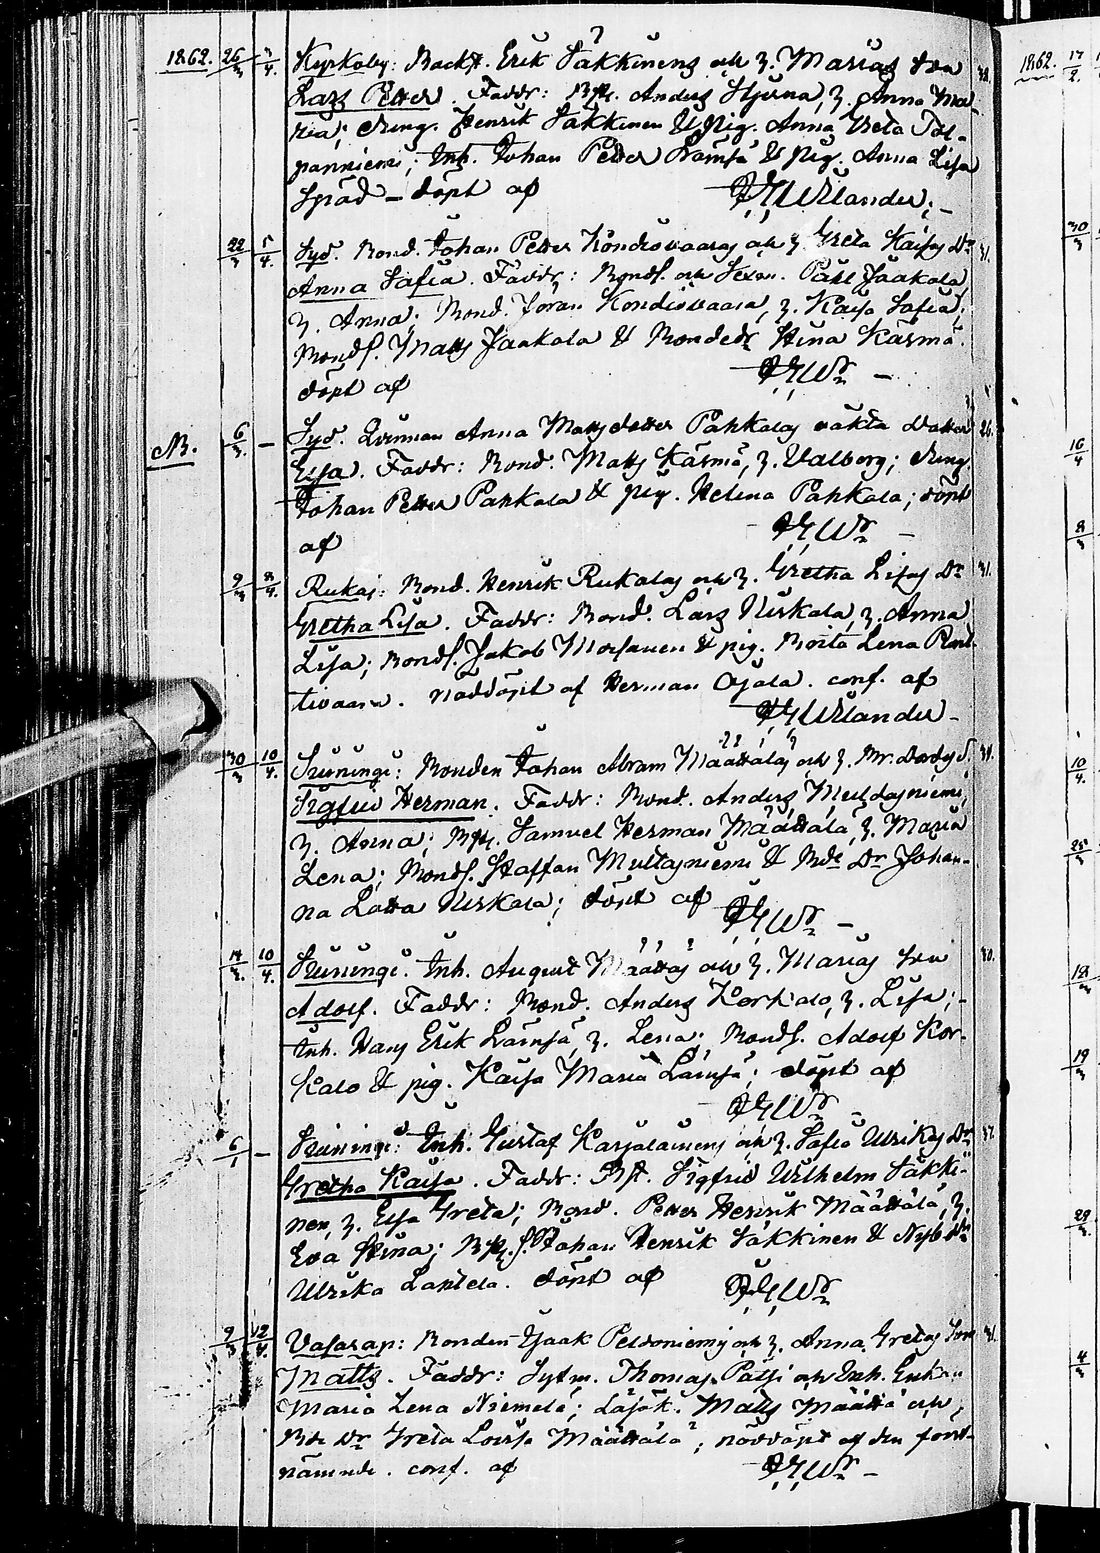 1862. 26/3 /4. Kyrkoby: Backst. Erik Säkkinens och h. Marias Son 38.
Lars Petter. Faddr: Anders Stjerna, h. Anna Ma-
ria; dreng. Henrik Säkkinen & pig. Anna Greta Tol-
panniemi; Inh. Johan Petter Lämsä & pig. Anna Lisa
Späd – döpt af JHWilander; –
22/3 5/4. Syd. Bond. Johan Petter Kondiovaaras och h. Greta Kaisas Dr 31.
Anna Safia. Faddr: Bonds. och Sexm. Pähl Jaakola,
h. Anna; Bond. Joran Kondiovaara, h. Kaisa Safia;
Bonds. Matts Jaakola & Bondedr Stina Käsmä.
döpt af JHWr –
NB. 6/3. – Syd. Qvinnan Anna Mattsdotter Pahkalas oäkta dotter 26.
Eisa. Faddr: Bond. Matts Käsmä, h. Valborg; dreng.
Johan Petter Pahkala & pig. Helena Pahkala; döpt
af JHWr –
9/3 8/4. Rukaj: Bond. Henrik Rukalas och h. Gretha Lisas Dr 31.
Gretha Lisa. Faddr: Bond. Lars Niskala, h. Anna
Lisa; Bonds. Jakob & pig. Borta Lena
tivaara. nöddöpt af Herman Ojala. conf. af
JHWilander –
30/3 10/4. Suiningi: Bonden Johan Abram Määttäläs och h. S. 34.
Sigfrid Herman. Faddr: Bond. Anders Multasniemi,
h. Anna; Samuel Herman Määttälä, h. Maria
Lena; Bonds. Staffan Multasniemi & Bde Dr Johan-
na Lotta Niskala; döpt af JHWr –
14/3. 10/4. Suiningi. Inh. August Määttäs och h. Marias Son 30.
Adolf. Faddr: Bond. Anders Korkalo, h. Lisa; –
Inh. Hans Erik Lämsä, h. Lena; Bonds. Adolf Kor-
kalo & pig. Kaisa Maria Lämsä; döpt af
JHWr –
6/1 – Suiningi: Inh. Gustaf Karjalainens och h. Safia Ulrikas Dr 37.
Gretha Kaisa. Faddr: Sigfrid Wilhelm Säkki-
nen, h. Elsa Greta; Bond. Petter Henrik Määttälä, h.
Eva Stina; Johan Henrik Säkkinen & Nyb Dr
Ulrika Lahtela. döpt af JHWr
9/3 12/4. Vasarap: Bonden Isaak Peldoniemis och h. Anna Gretas Son 31.
Matts. Faddr: Thomas Pätsi och Inh. Enkan
Maria Lena Niemelä; Matts Määttä och
Bde Dr Greta Lovisa Määttälä; nöddöpt af den först-
nämnde. conf. af JHWr –
1862. 17/2.
30/3
16/4
8/3
10/4.
25/3
18/3
19/3
29/3
4/3